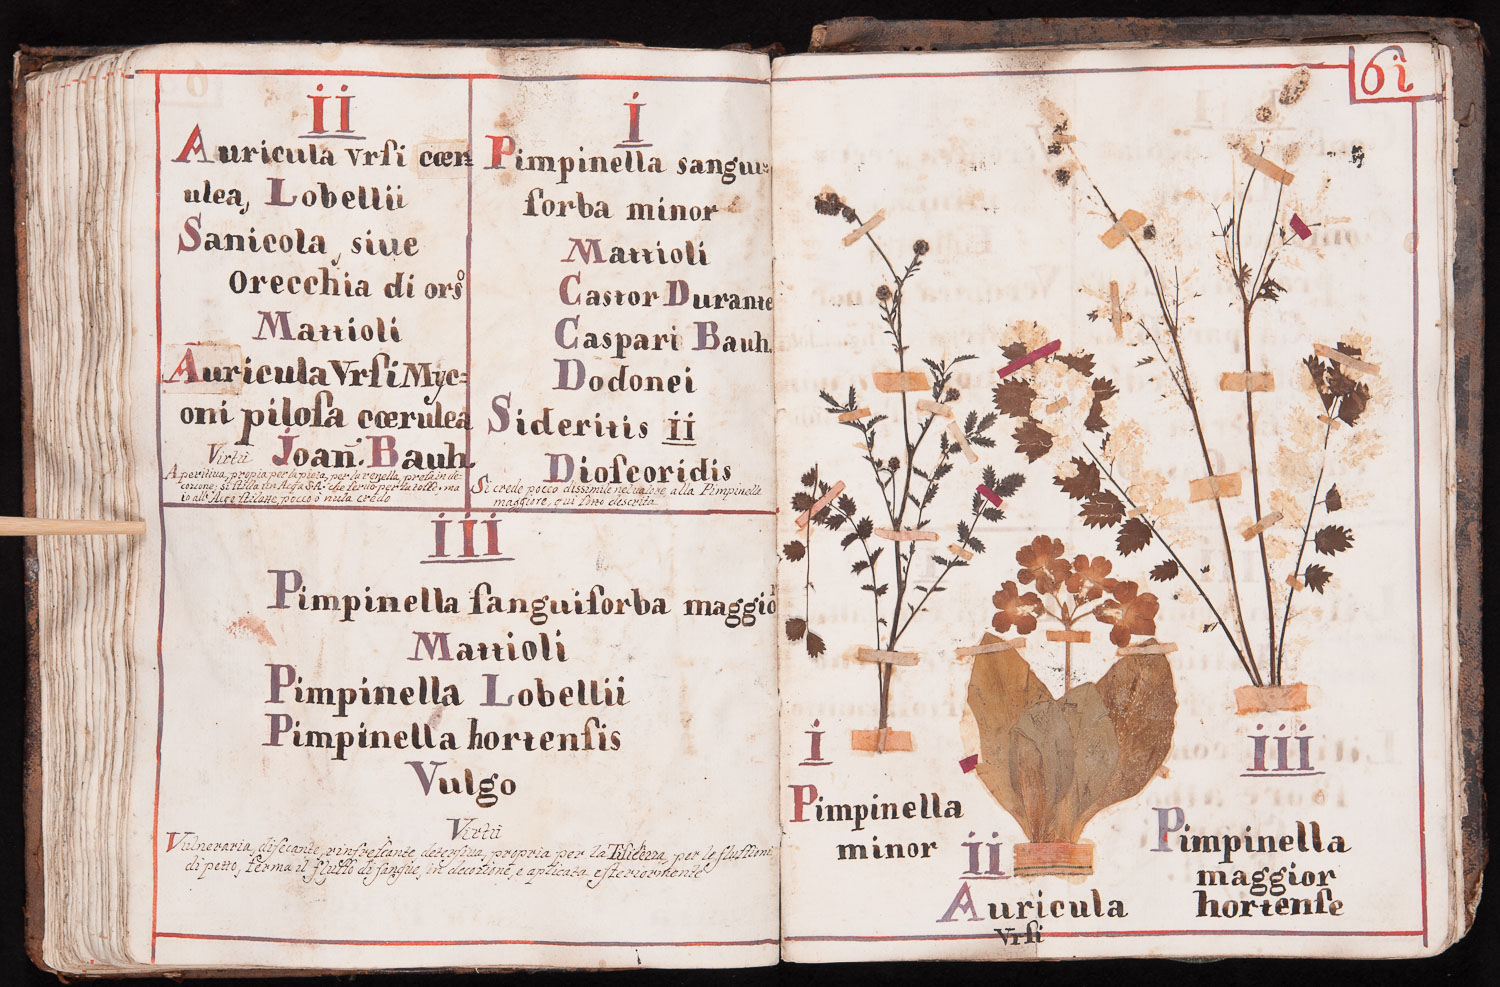 ii
Auricula Vrsi cœr=
ulea, Lobellii
Sanicola, siue
Orecchia di orso
Mattioli
Auricula Vrsi Myc=
oni pilosa cœrulea
Joan. Bauh.
Virtù
Aperitiua, propia per la pietra, per la renella, presa in de=
cozione; si stilla un Acqa che serue per la tosse. ma
io all' Acqe stilate, pocco o nulla credo
i
Pimpinella sangui=
sorba minor
Mattioli
Castor Durante
Caspari Bauh.
Dodonei
Sideritis ii
Dioscoridis
Si crede pocco dissimile nel ualore, alla Pimpinella
maggiore, qui sotto descrita
iii
Pimpinella sanguisorba maggior
Mattioli
Pimpinella Lobellii
Pimpinella hortensis
Vulgo
Virtù
Vulneraria, disecante, rinfrescante, detersiua, propria per la Tisichezza, per le flussioni
di petto, ferma il flusso di sangue, in decozione, e aplicata esteriormente
6i
i
Pimpinella
minor
ii
Auricula
Vrsi
iii
Pimpinella
maggior
hortense